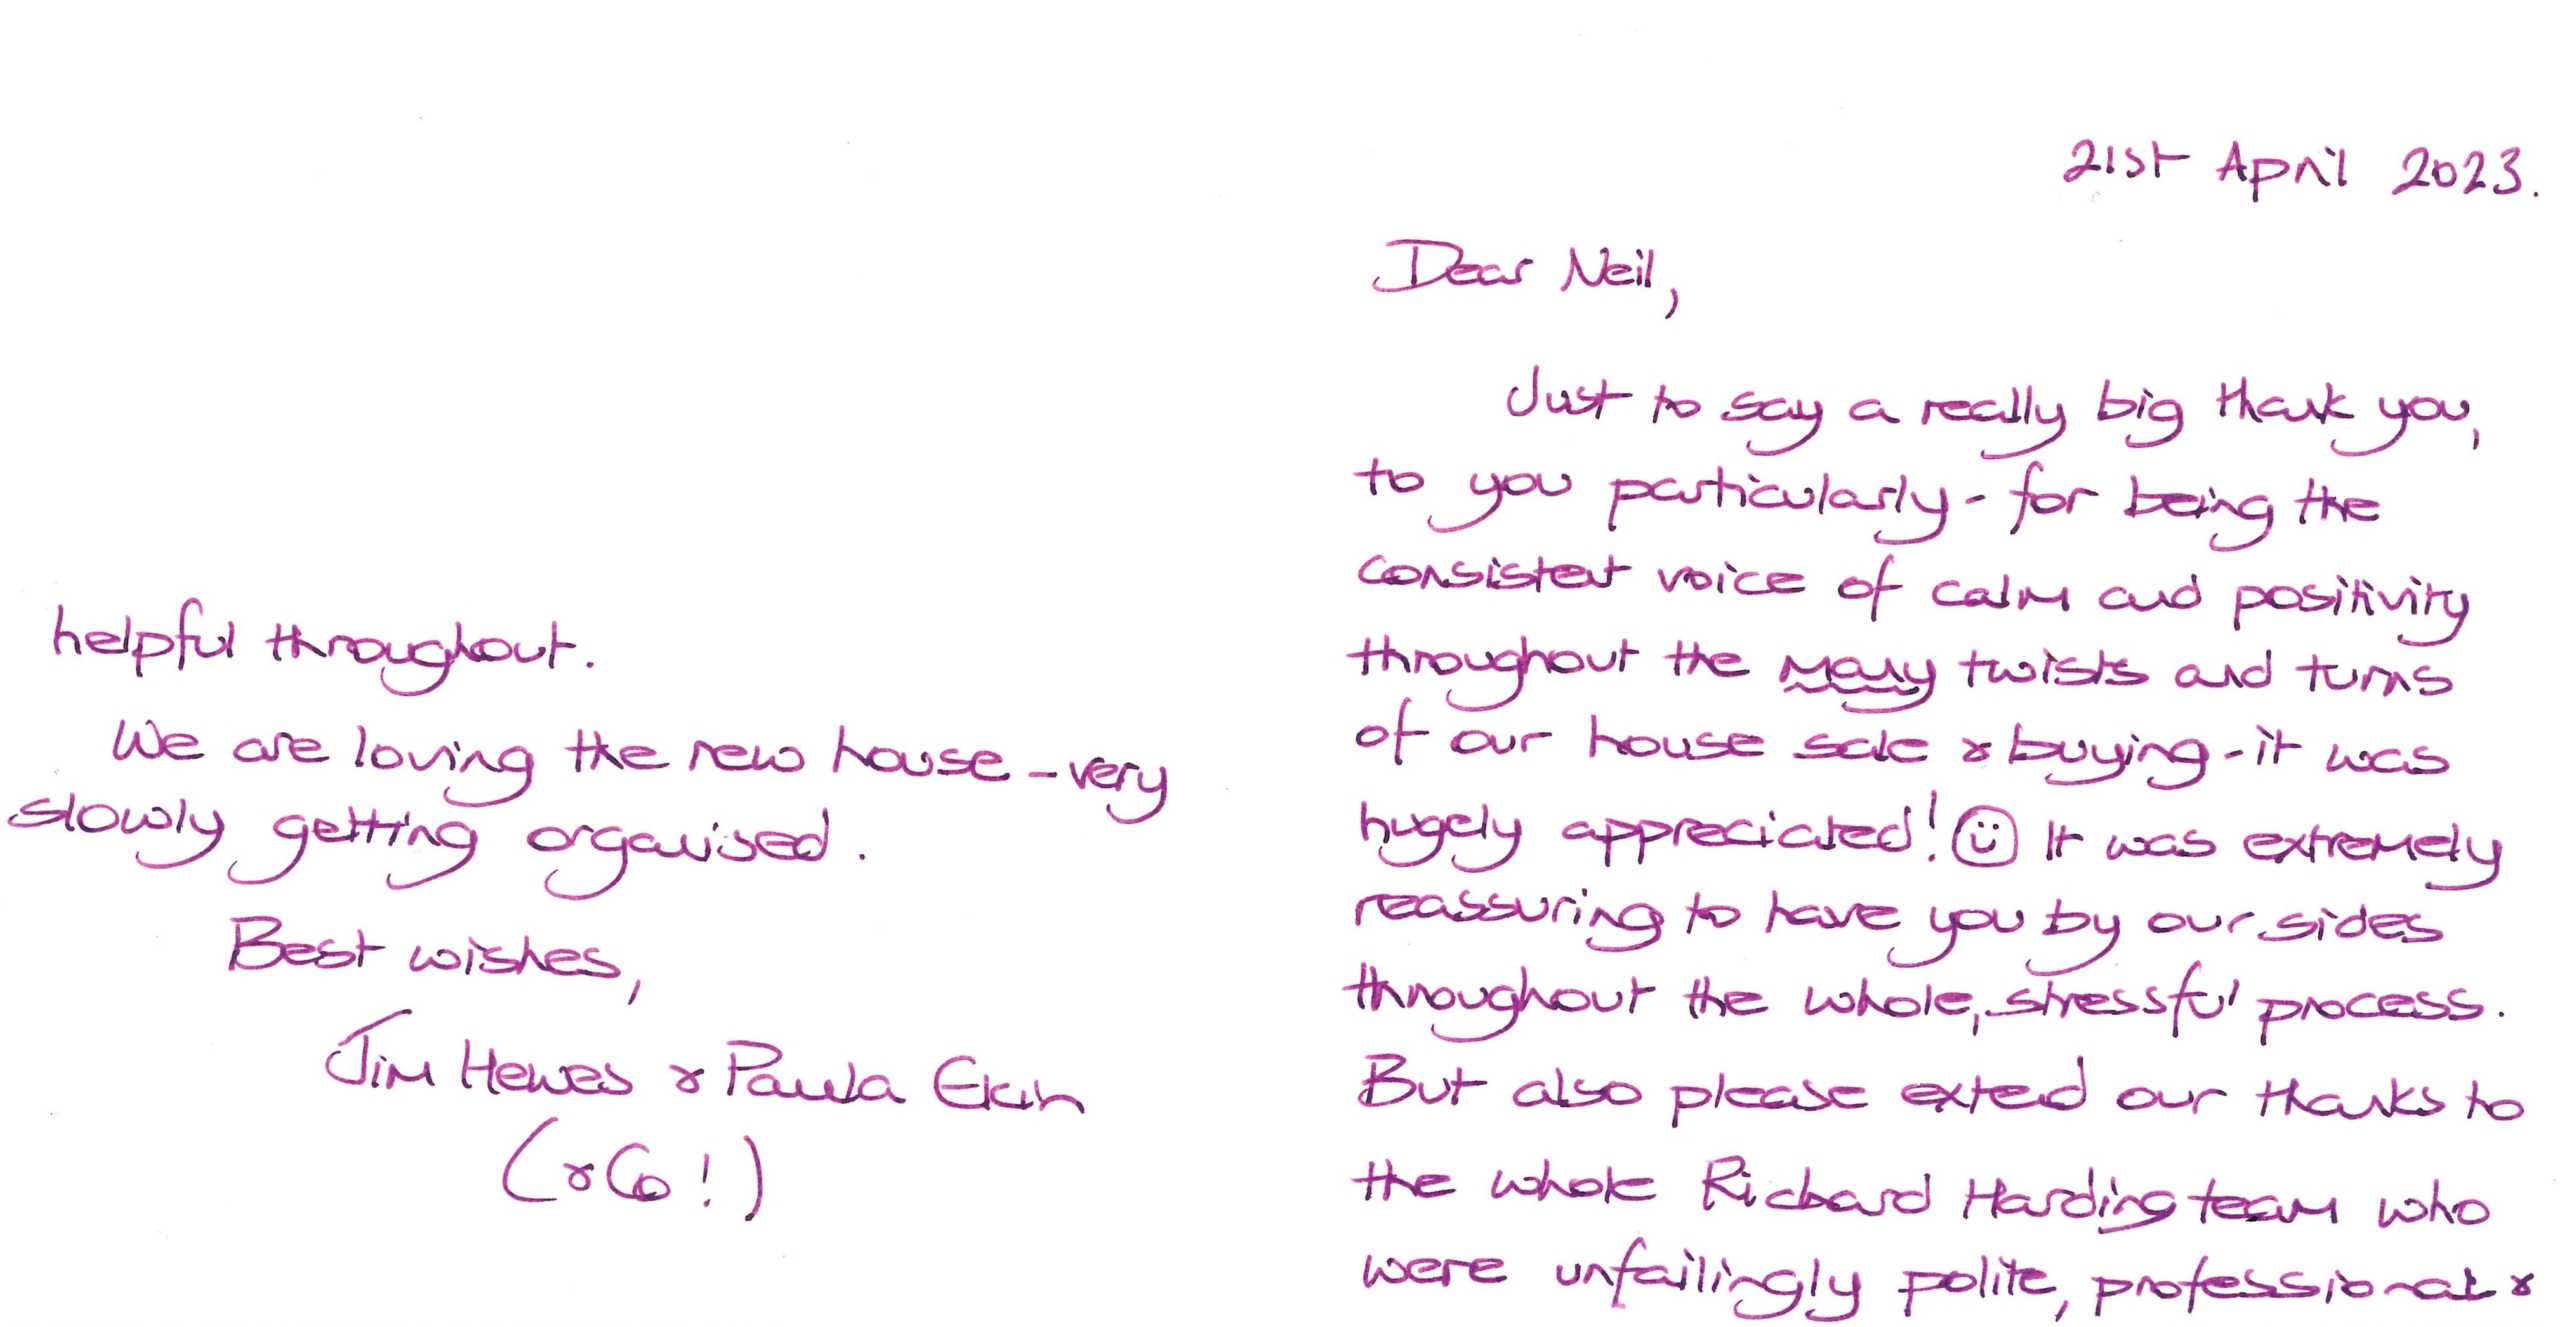 21st April 2023.
Dear Neil,
Just to say a really big thank you,
to you particularly - for being the
consistent voice of calm and positivity
throughout the many twists and turns
of our house sale & buying - it was
hugely appreciated! ☺ It was extremely
reassuring to have you by our sides
throughout the whole, stressful process.
But also please extend our thanks to
the whole Richard Harding team who
were unfailingly polite, professional &
helpful throughout.
We are loving the new house - very
slowly getting organised.
Best wishes,
Jim Hewes & Paula
(& Co!)